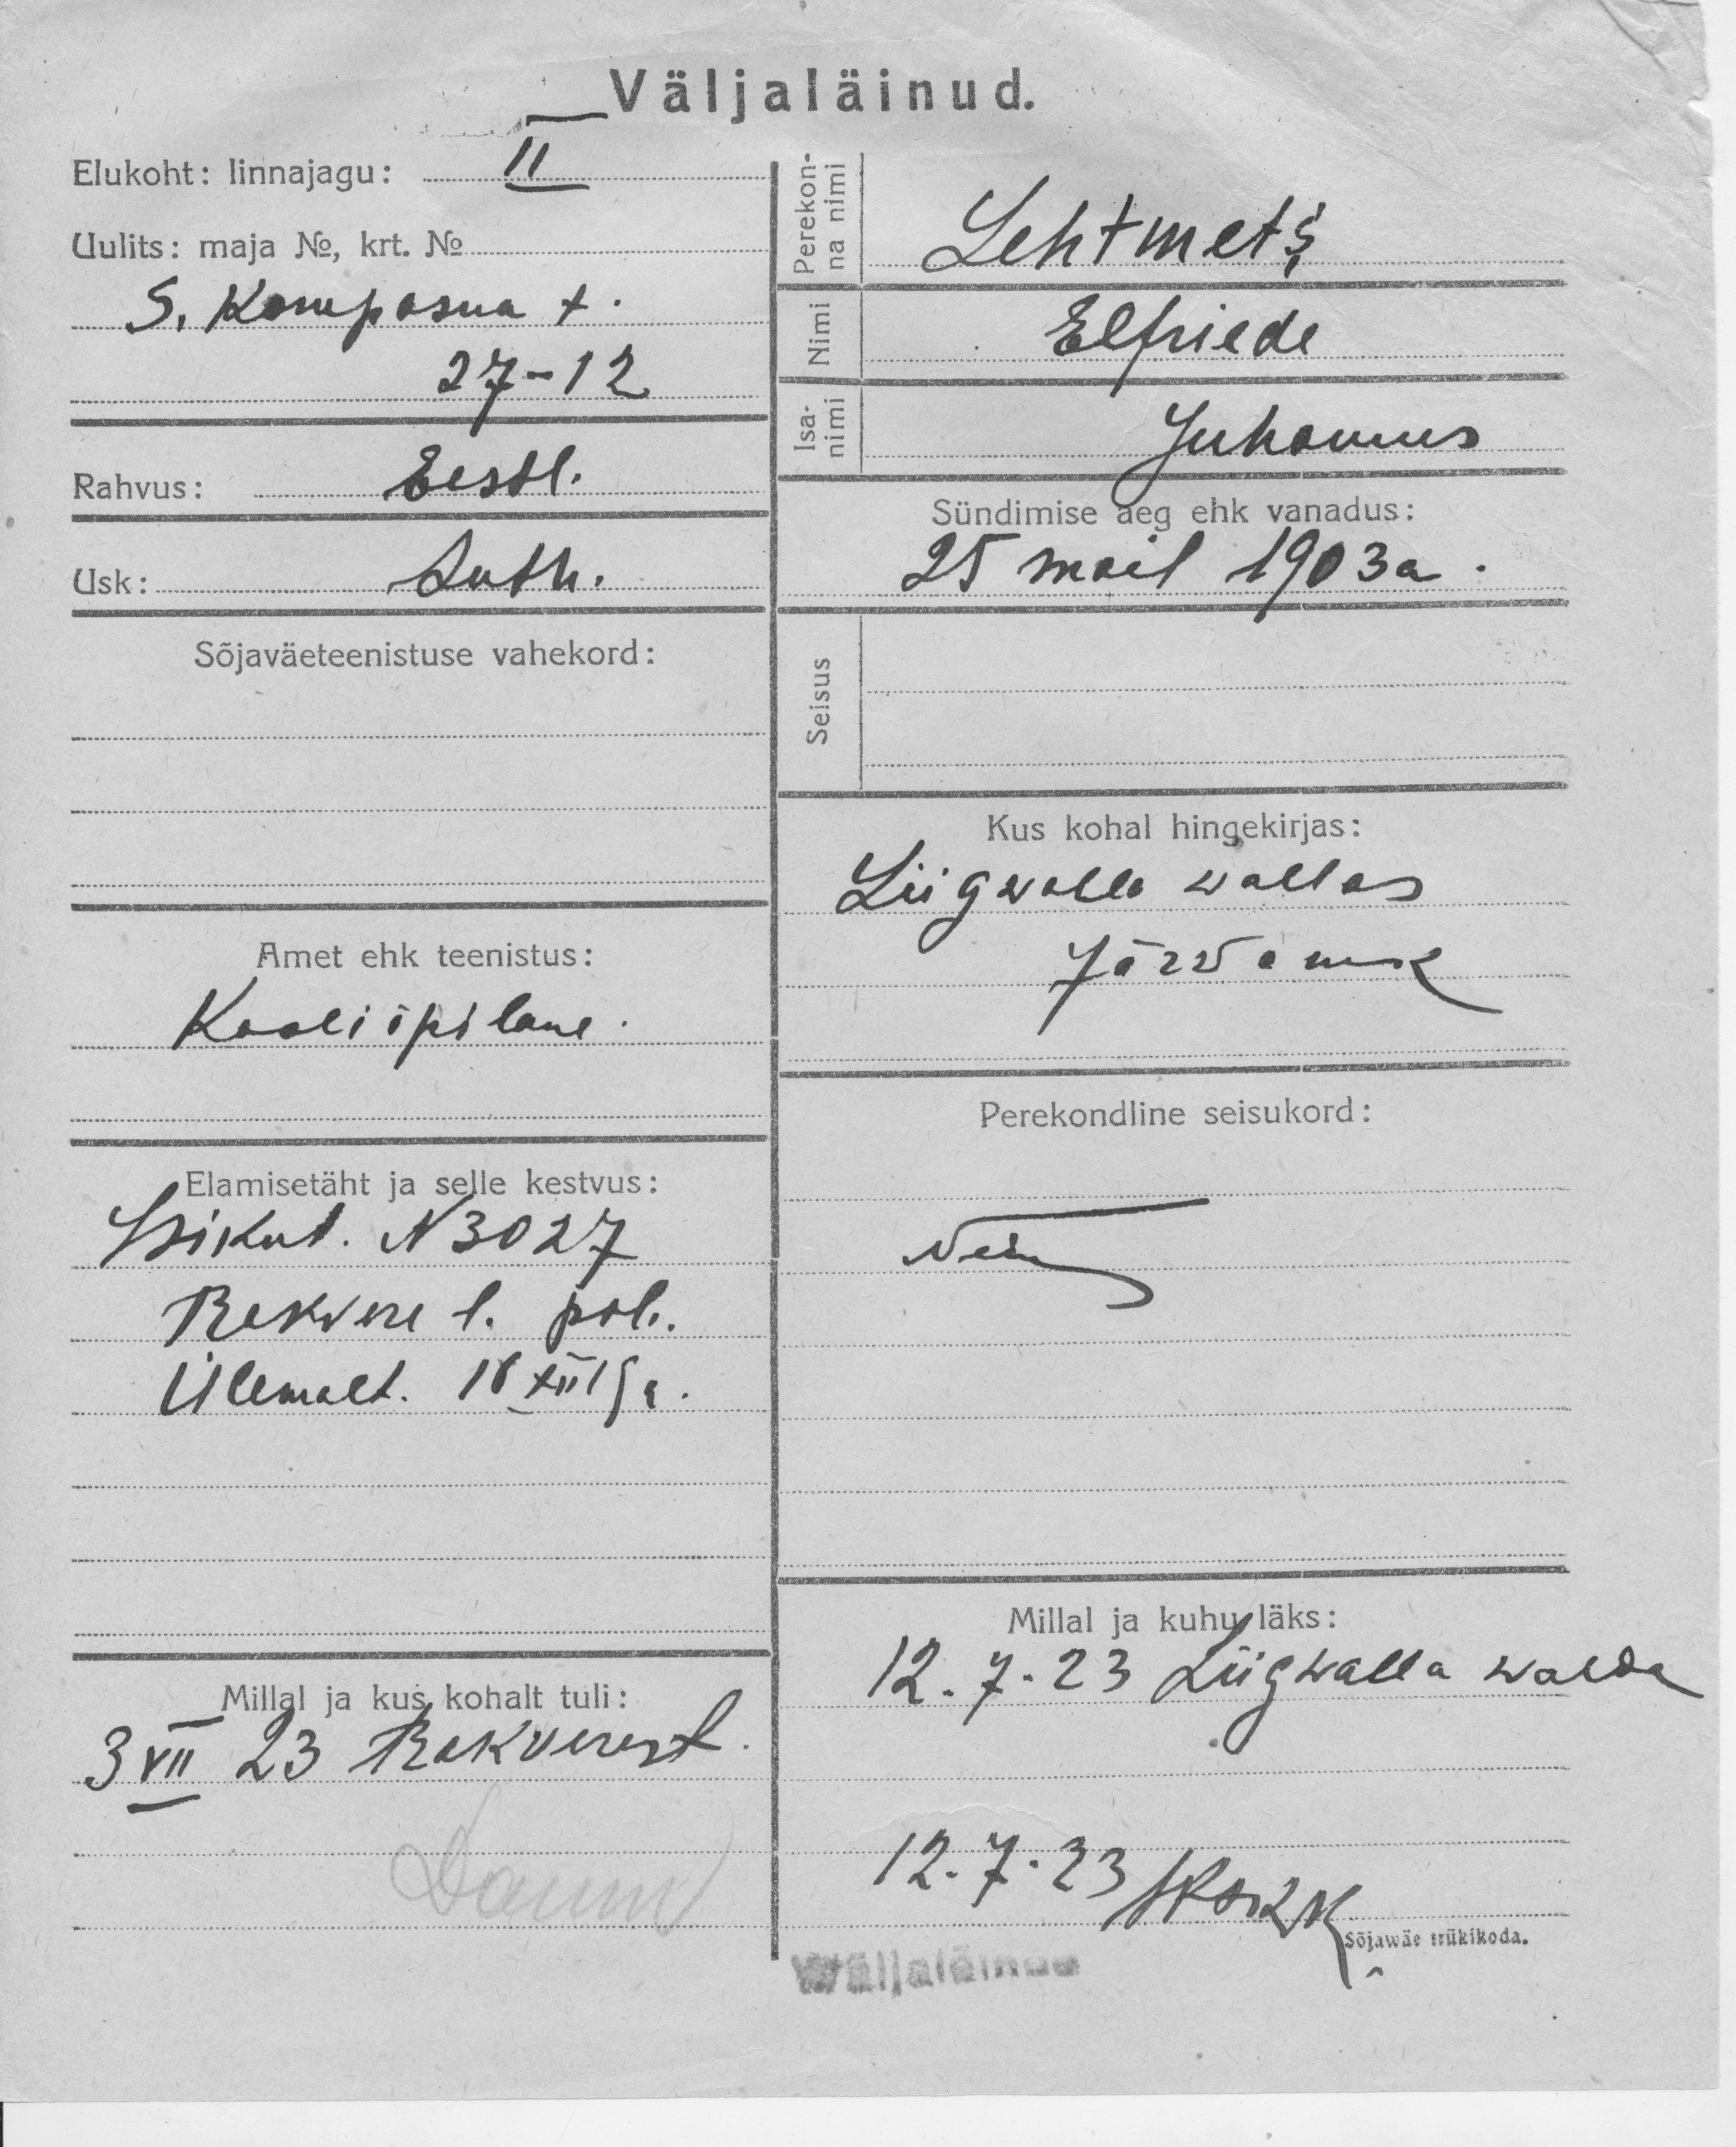 Väljaläinud.
Elukoht: linnajagu: II
Uulits: maja №, krt. №
S. Kompasna t.
27-12
Rahvus: Eestl.
Usk: Luth.
Sõjaväeteenistuse vahekord:
Amet ehk teenistus:
Kooliõpilane.
Elamisetäht ja selle kestvus:
Isikut. N 3027
Rakvere l. pol.
Ülemalt.
Millal ja kus kohalt tuli:
3 VII 23 Rakverest.
Perekonna nimi
Lehtmets
Nimi
Elfriede
Isanimi
Juhannes
Sündimise aeg ehk vanadus:
25 mail 1903a.
Seisus
Kus kohal hingekirjas:
Liigvalla wallas
Järvamk
Perekondline seisukord:
Neiu
Millal ja kuhu läks:
12.7.23 Liigvalla walda
12.7.23
Sõjawäe trükikoda.
Wäljaläinud